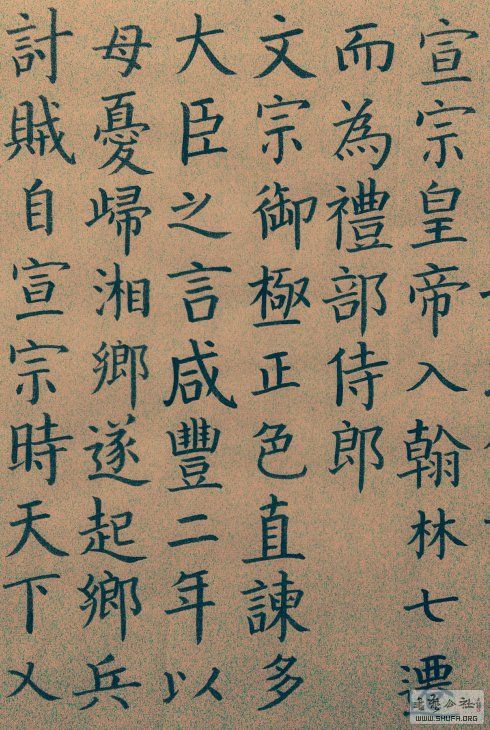 宣宗皇帝入翰林七遷
而為禮部侍郎
文宗御極正色直諫多
大臣之言咸豐二年以
母憂歸湘鄉遂起鄉兵
討賊自宣宗時天下乂
WWW.SHUFA.ORG